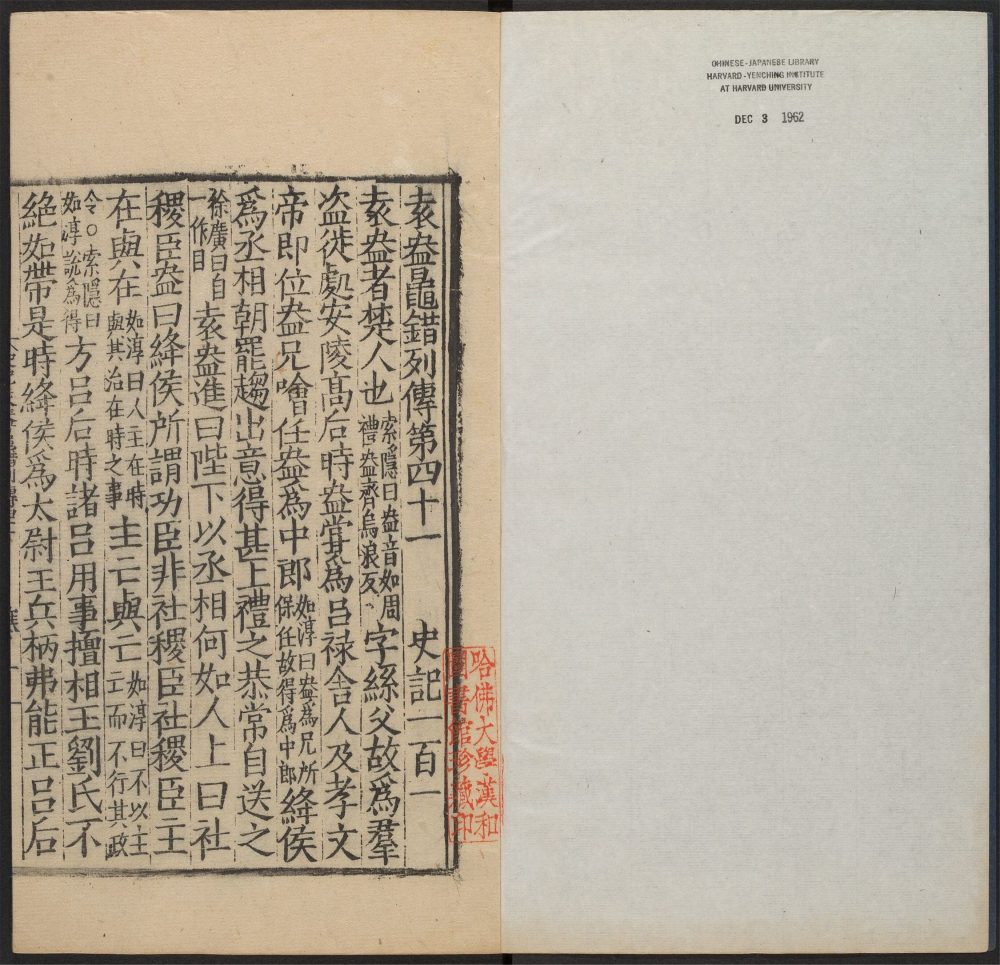 CHINESE-JAPANESE LIBRARY
HARVARD-YENCHING INSTITUTE
AT HARVARD UNIVERSITY
DEC 3 1962
哈佛大學漢和
圖書館珍藏印
袁盎鼂錯列傳第四十一 史記一百一
袁盎者楚人也索隱曰盎音如周禮盎齊烏浪反字絲父故爲羣
盗徙處安陵高后時盎嘗爲吕禄舍人及孝文
帝即位盎兄噲任盎爲中郎如淳曰盎爲兄所保任故得爲中郎絳侯
爲丞相朝罷趨出意得甚上禮之恭常自送之
徐廣曰自一作目袁盎進曰陛下以丞相何如人上曰社
稷臣盎曰絳侯所謂功臣非社稷臣社稷臣主
在與在如淳曰人主在時與其治在時之事主亡與亡如淳曰不以主亡而不行其政
令○索隱曰如淳說爲得方吕后時諸吕用事擅相王劉氏不
絶如帶是時絳侯爲太尉主兵柄弗能正吕后